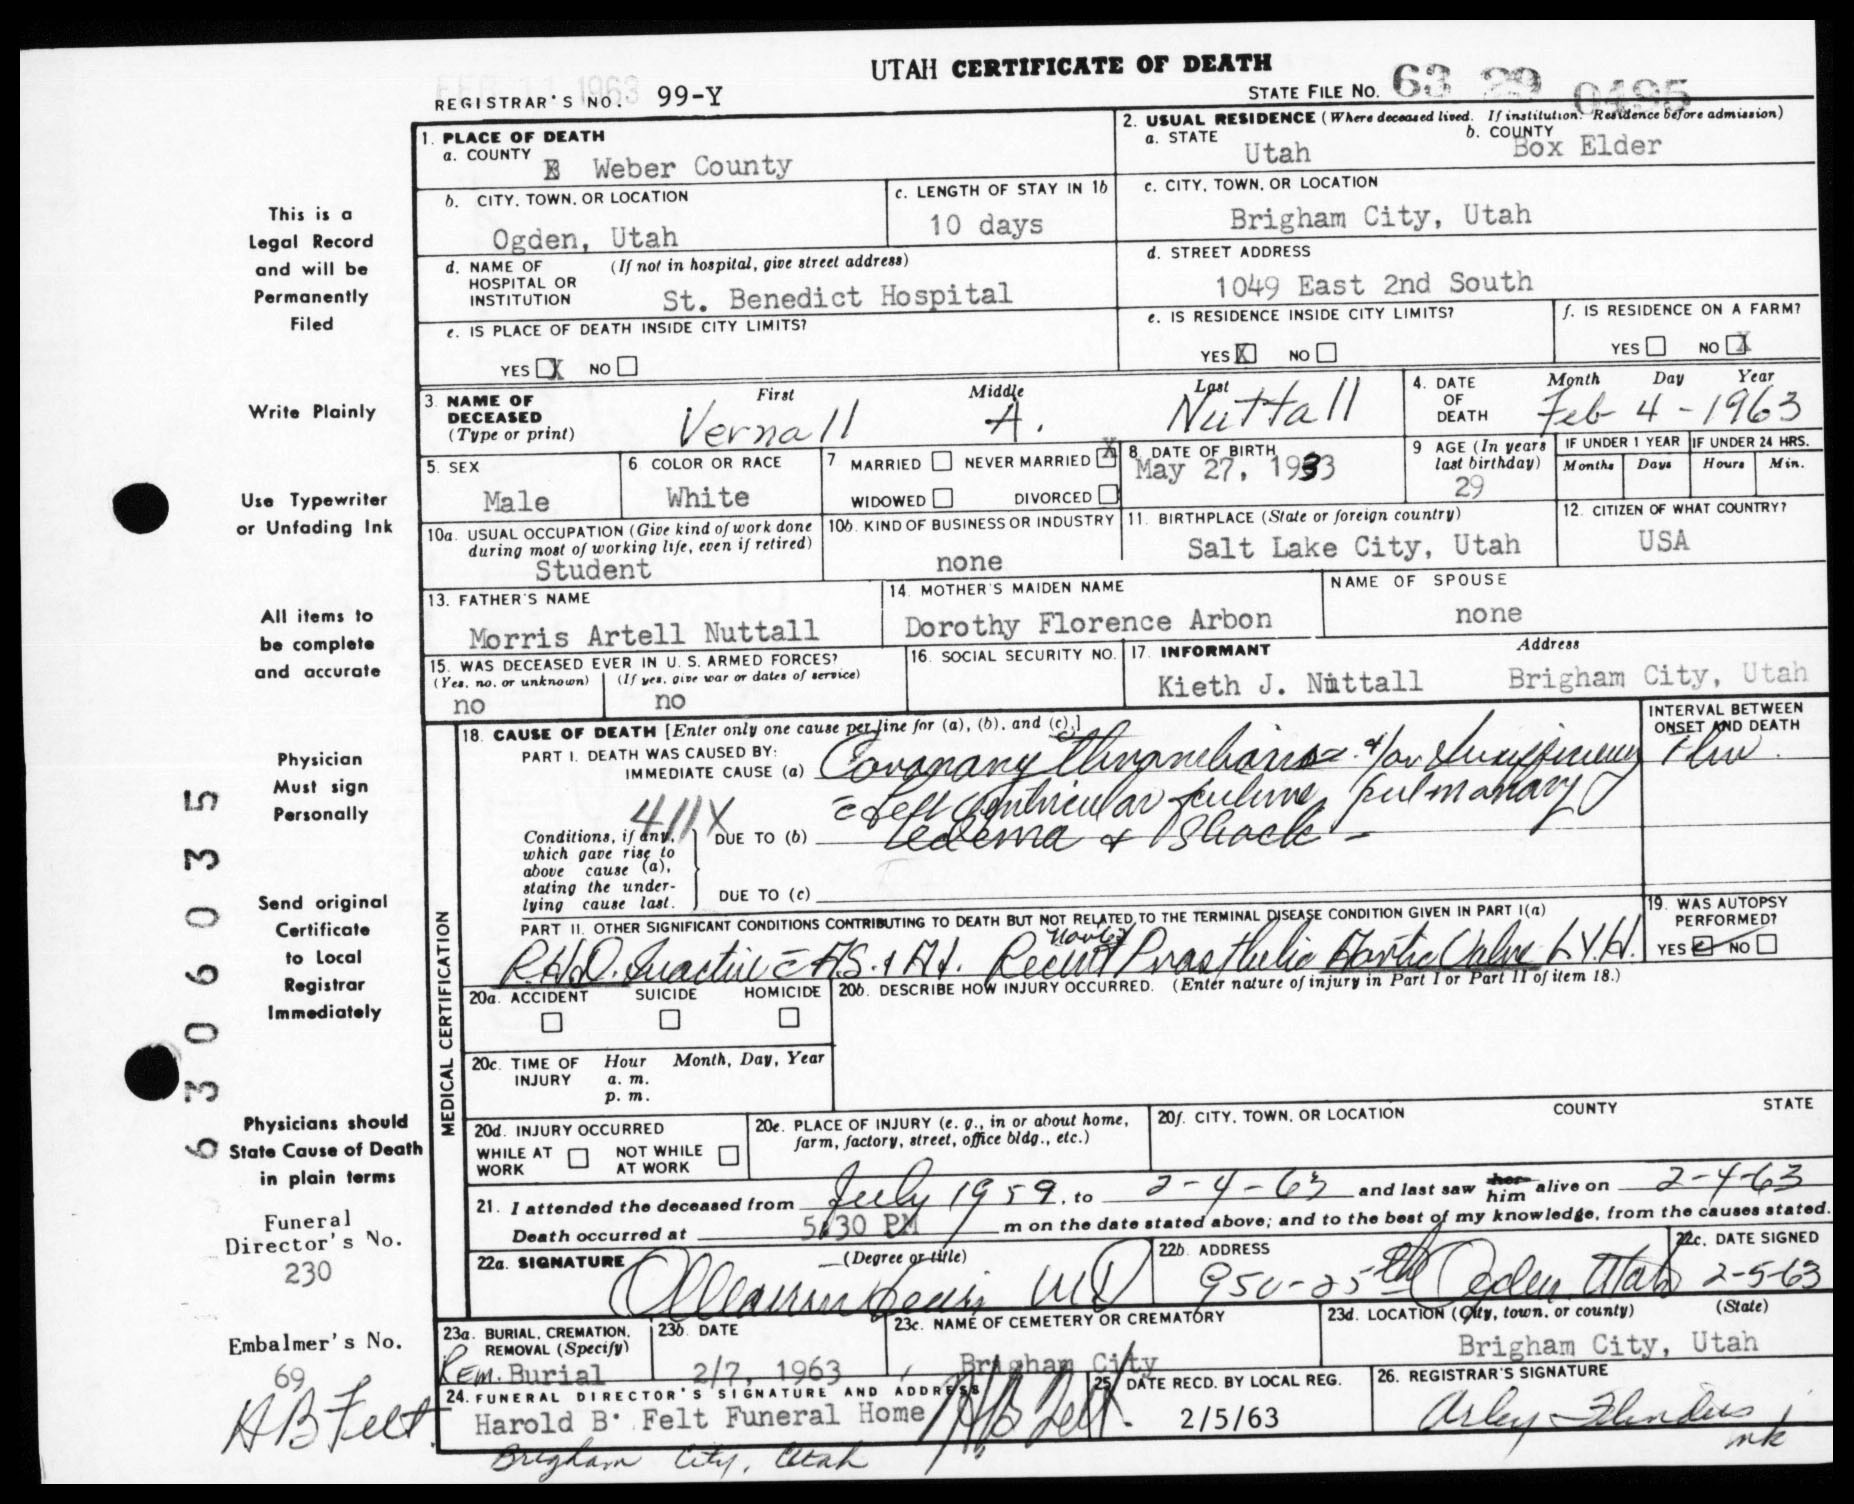 UTAH CERTIFICATE OF DEATH
FEB 11 1963
REGISTRAR'S NO. 99-Y
STATE FILE NO. 63 29 0495
1. PLACE OF DEATH
a. COUNTY
Weber County
2. USUAL RESIDENCE (Where deceased lived. If institution: Residence before admission)
a. STATE
Utah
b. COUNTY
Box Elder
b. CITY, TOWN, OR LOCATION
Ogden, Utah
c. LENGTH OF STAY IN 1b
10 days
c. CITY, TOWN, OR LOCATION
Brigham City, Utah
d. NAME OF HOSPITAL OR INSTITUTION
(If not in hospital, give street address)
St. Benedict Hospital
d. STREET ADDRESS
1049 East 2nd South
e. IS PLACE OF DEATH INSIDE CITY LIMITS?
YES X NO
e. IS RESIDENCE INSIDE CITY LIMITS?
YES X NO
f. IS RESIDENCE ON A FARM?
YES NO X
3. NAME OF DECEASED
(Type or print)
First Middle Last
Vernall A. Nuttall
4. DATE OF DEATH
Month Day Year
Feb 4 - 1963
5. SEX
Male
6. COLOR OR RACE
White
7. MARRIED NEVER MARRIED X
WIDOWED DIVORCED
8. DATE OF BIRTH
May 27, 1933
9 AGE (In years last birthday)
29
IF UNDER 1 YEAR
Months Days
IF UNDER 24 HRS.
Hours Min.
10a. USUAL OCCUPATION (Give kind of work done during most of working life, even if retired)
Student
10b. KIND OF BUSINESS OR INDUSTRY
none
11. BIRTHPLACE (State or foreign country)
Salt Lake City, Utah
12. CITIZEN OF WHAT COUNTRY?
USA
13. FATHER'S NAME
Morris Artell Nuttall
14. MOTHER'S MAIDEN NAME
Dorothy Florence Arbon
NAME OF SPOUSE
none
15. WAS DECEASED EVER IN U. S. ARMED FORCES?
(Yes, no, or unknown) (If yes, give war or dates of service)
no no
16. SOCIAL SECURITY NO.
17. INFORMANT Address
Kieth J. Nuttall Brigham City, Utah
MEDICAL CERTIFICATION
18. CAUSE OF DEATH [Enter only one cause per line for (a), (b), and (c).]
PART I. DEATH WAS CAUSED BY:
IMMEDIATE CAUSE (a) Coronary thrombosis &/or Insufficiency
c̄ Left ventricular failure, pulmonary
411X
Conditions, if any, which gave rise to above cause (a), stating the underlying cause last.
DUE TO (b) edema & shock -
DUE TO (c)
INTERVAL BETWEEN ONSET AND DEATH
PART II. OTHER SIGNIFICANT CONDITIONS CONTRIBUTING TO DEATH BUT NOT RELATED TO THE TERMINAL DISEASE CONDITION GIVEN IN PART I(a)
R.H.D. Inactive c̄ A.S. & A.I. Recent Prosthetic Aortic Valve L.V.H.
19. WAS AUTOPSY PERFORMED?
YES NO
20a. ACCIDENT SUICIDE HOMICIDE
20b. DESCRIBE HOW INJURY OCCURRED. (Enter nature of injury in Part I or Part II of item 18.)
20c. TIME OF INJURY
Hour Month, Day, Year
a. m.
p. m.
20d. INJURY OCCURRED
WHILE AT WORK NOT WHILE AT WORK
20e. PLACE OF INJURY (e. g., in or about home, farm, factory, street, office bldg., etc.)
20f. CITY, TOWN, OR LOCATION COUNTY STATE
21. I attended the deceased from July 1959, to 2-4-63 and last saw her him alive on 2-4-63
Death occurred at 5:30 PM m on the date stated above; and to the best of my knowledge, from the causes stated.
22a. SIGNATURE (Degree or title)
MD
22b. ADDRESS
950-25th Ogden, Utah
22c. DATE SIGNED
2-5-63
23a. BURIAL, CREMATION, REMOVAL (Specify)
Rem. Burial
23b. DATE
2/7, 1963
23c. NAME OF CEMETERY OR CREMATORY
Brigham City
23d. LOCATION (City, town, or county) (State)
Brigham City, Utah
24. FUNERAL DIRECTOR'S SIGNATURE AND ADDRESS
Harold B. Felt Funeral Home H.B. Felt
Brigham City, Utah
25. DATE RECD. BY LOCAL REG.
2/5/63
26. REGISTRAR'S SIGNATURE
mk
This is a
Legal Record
and will be
Permanently
Filed
Write Plainly
Use Typewriter
or Unfading Ink
All items to
be complete
and accurate
Physician
Must sign
Personally
Send original
Certificate
to Local
Registrar
Immediately
Physicians should
State Cause of Death
in plain terms
Funeral
Director's No.
230
Embalmer's No.
69
H B Felt
6306035